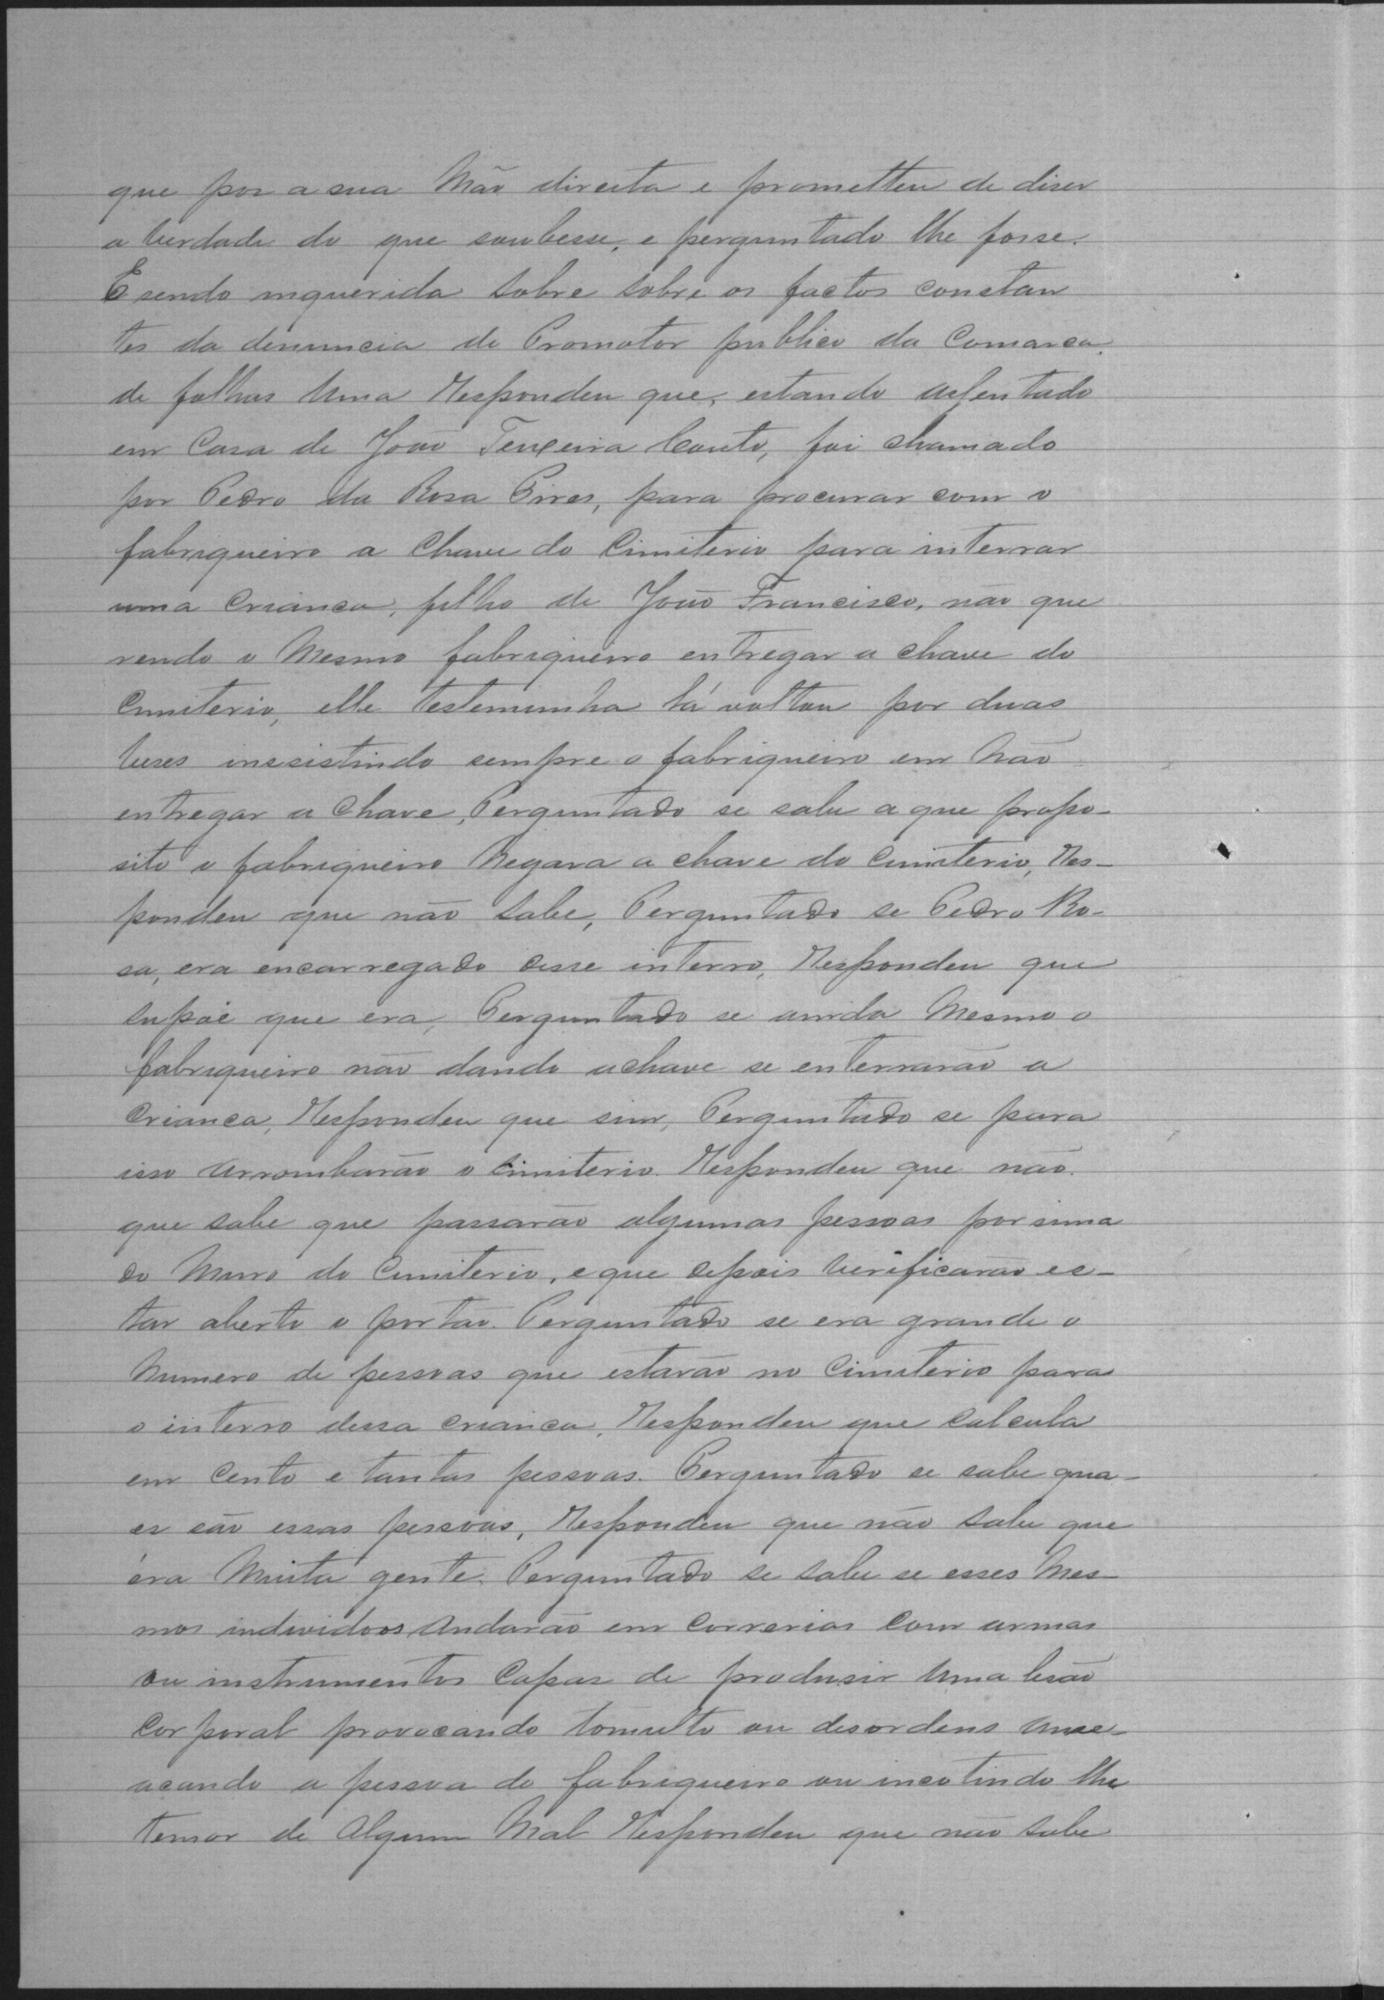 que pos a sua Mão direita e prometteu de diser
a verdade do que soubesse, e perguntado lhe fosse.
E sendo inquerida sobre sobre os factos constan
tes da denuncia do Promotor publico da Comarca
de folhas Uma Respondeu que, estando
em Casa de João Teixeira Couto, foi chamado
por Pedro da Rosa Pires, para procurar com o
fabriqueiro a Chave do Cimiterio para interrar
uma Crianca, filho de João Francisco, não que
rendo o Mesmo fabriqueiro entregar a chave do
Cimiterio, elle testemunha lá voltou por duas
veses inssistindo sempre o fabriqueiro em Não
entregar a Chave, Perguntado se sabe a que propo-
sito o fabriqueiro Negara a chave do Cimiterio, Res-
pondeu que não sabe, Perguntado se Pedro Ro-
sa, era encarregado desse interro, Respondeu que
supõe que era, Perguntado se ainda Mesmo o
fabriqueiro não dando a chave se enterrarão a
Crianca, Respondeu que sim, Perguntado se para
isso arrombarão o Cimiterio. Respondeu que não.
que sabe que passarão algumas pessoas por sima
do Muro do Cimiterio, e que depois verificarão es-
tar aberto o portão. Perguntado se era grande o
Numero de pessoas que estarão no Cimiterio para
o interro dessa crianca, Respondeu que calcula
em Cento e tantas pessoas. Perguntado se sabe qua-
es são essas pessoas, Respondeu que não sabe que
éra Muita gente. Perguntado se sabe se esses Mes-
mos individoos Andarão em Correrias Com armas
ou instrumentos Capas de produsir Uma lesão
Corporal provocando tomulto ou desordens Ame-
acando a pessoa do fabriqueiro ou incotindo lhe
temor de Algum Mal Respondeu que não sabe